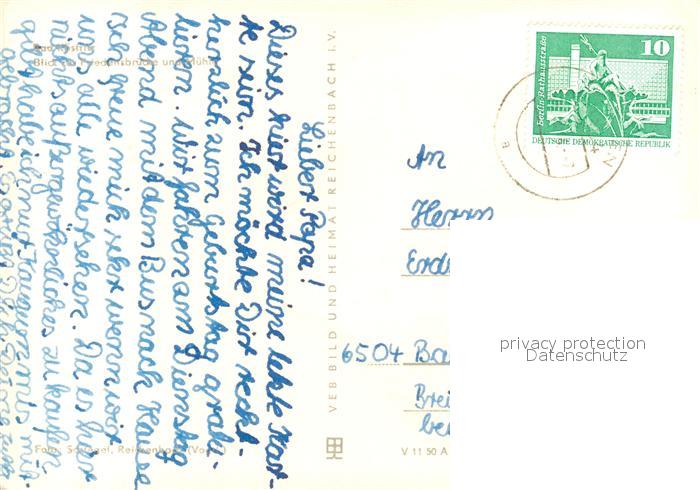 Bad Köstritz
Blick zur Friedensbrücke und Mühle
Liebert Papa!
Dieses hier wird meine letzte Kart-
te sein. Ich möchte Dir recht
herzlich zum Geburtstag gratu-
lieren. Wir fahren am Dienstag
abend mit dem Bus nach Hause
Ich freue mich sehr wenn wir
uns alle wiedersehen. Da es hier
nichts außergewöhnliches zu kaufen
gibt habe ich mit
VEB BILD UND HEIMAT REICHENBACH i. V.
Foto: Schlegel, Reichenbach (Vogtl.)
V 11 50 A
10
Berlin · Rathausstraße
DEUTSCHE DEMOKRATISCHE REPUBLIK
An
Herrn
Erd
6504 Ba
Brei
be
privacy protection
Datenschutz